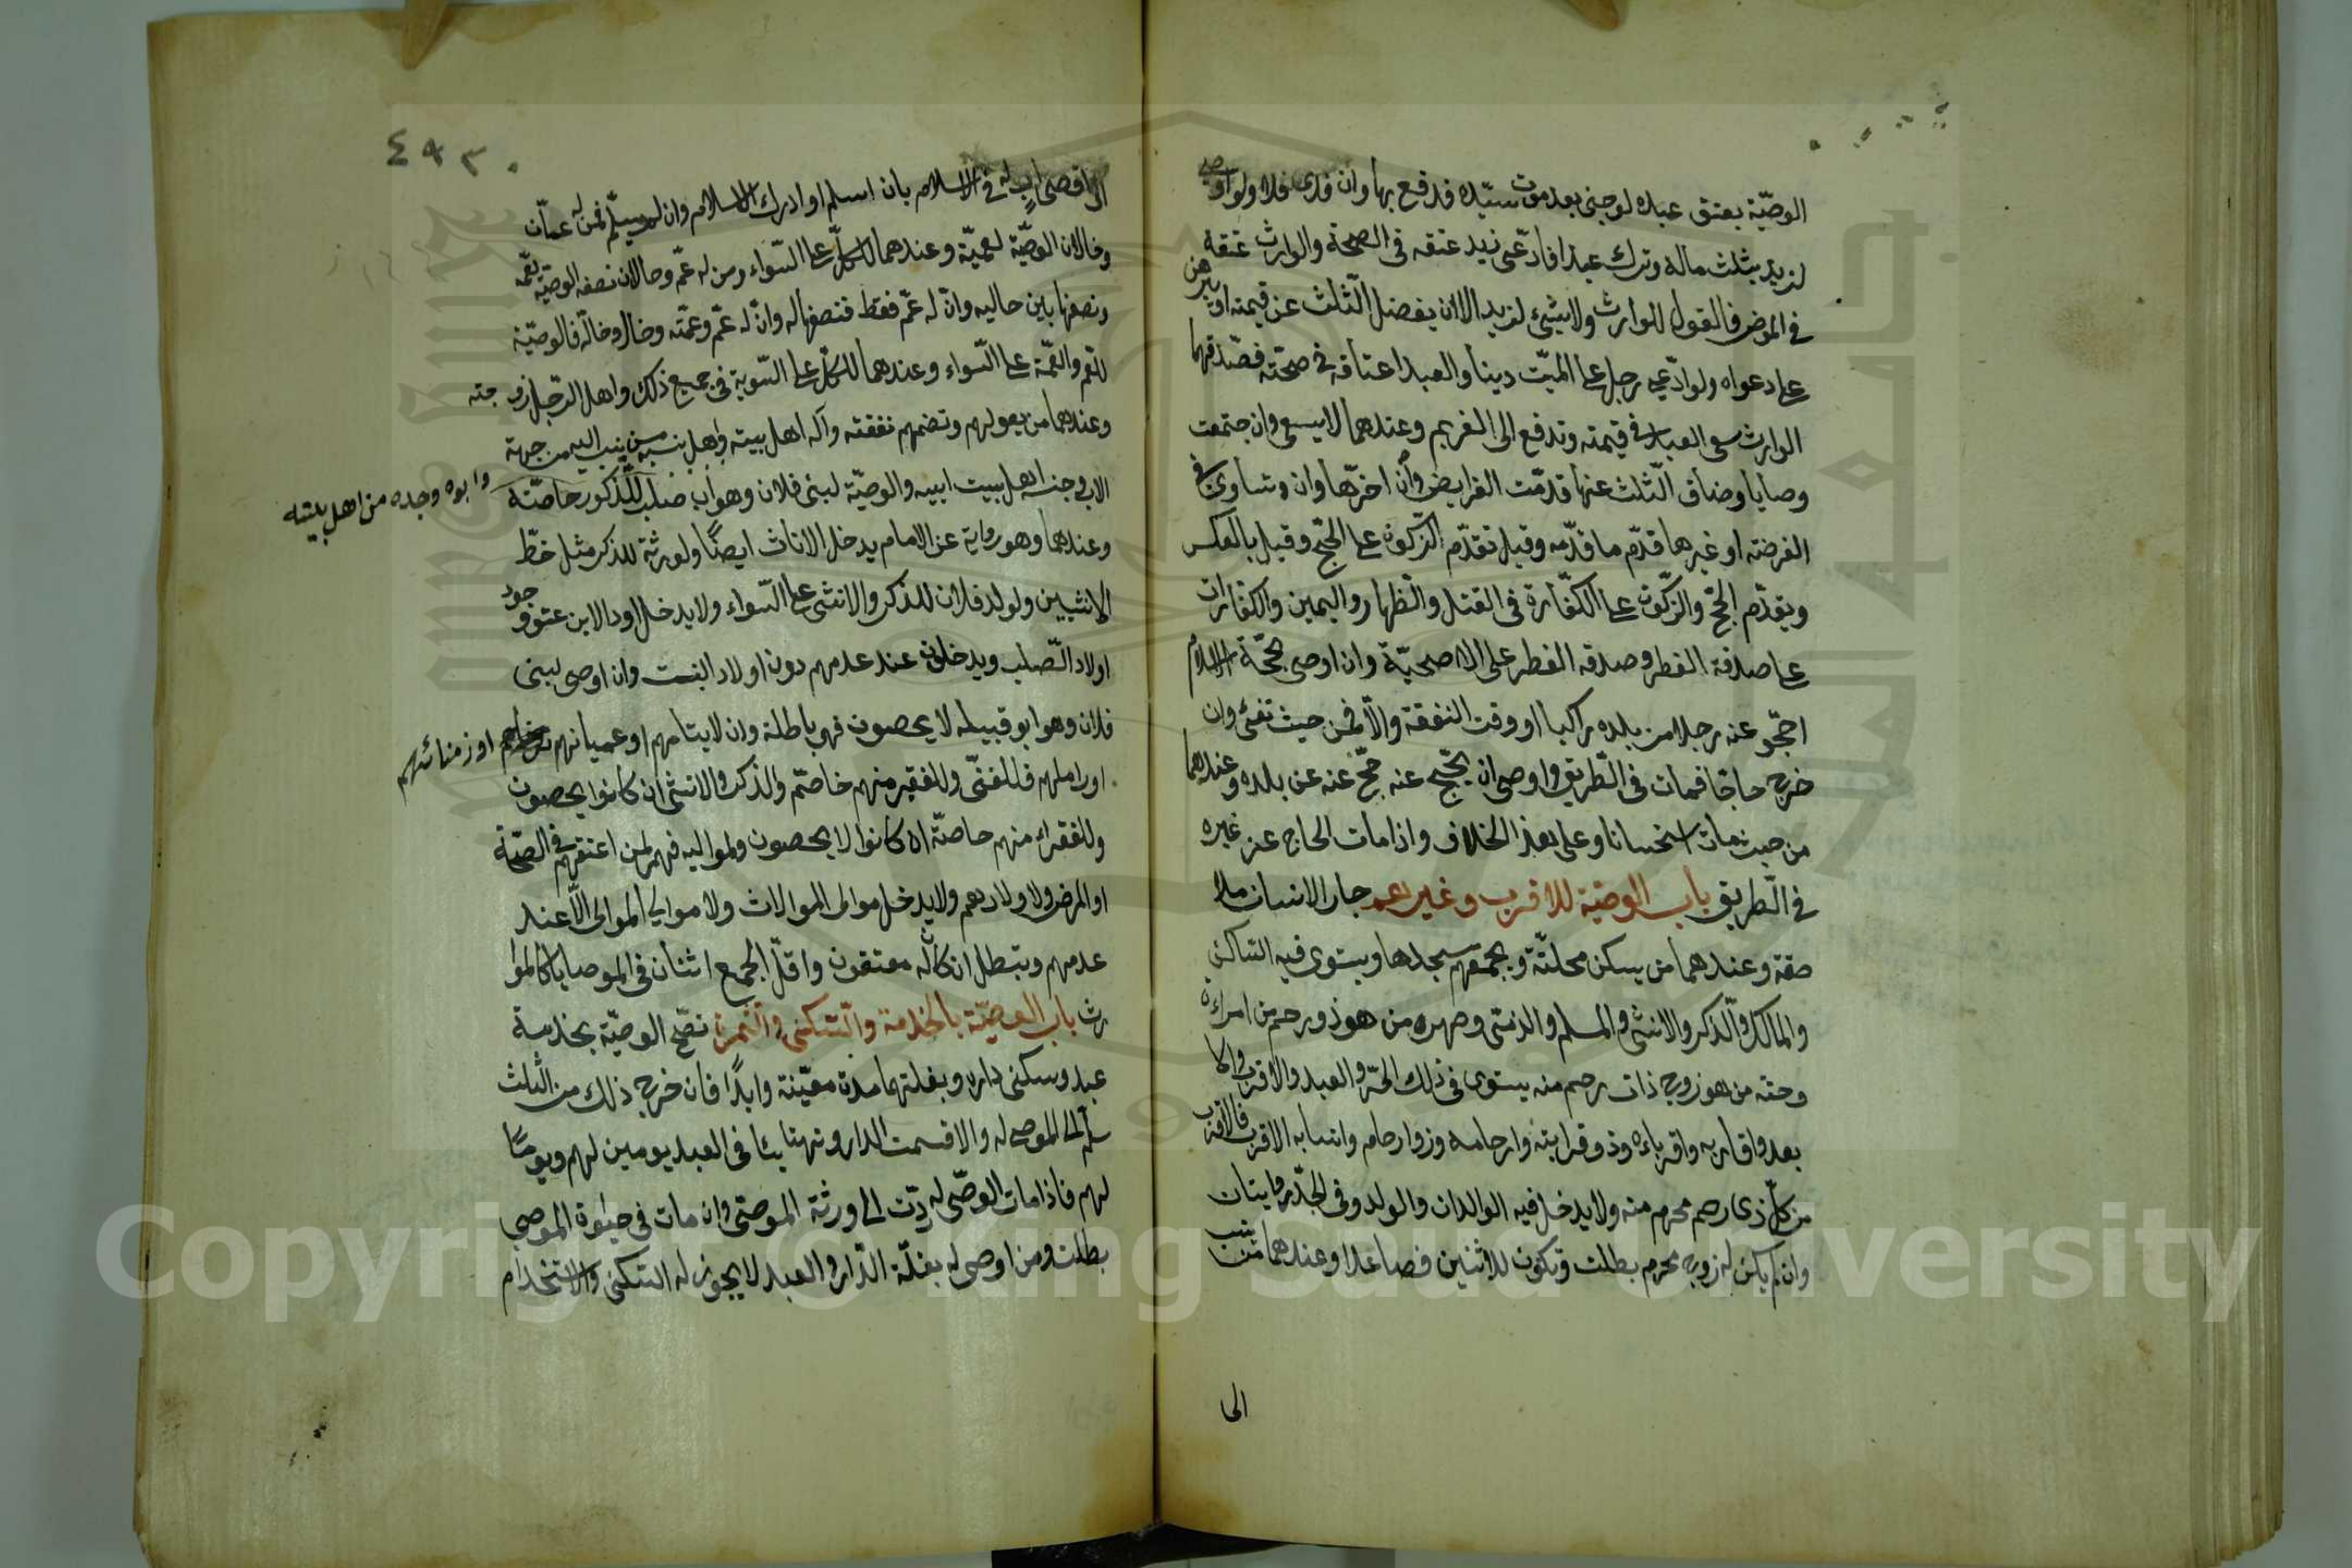 الوصيّة بعتق عبده لوجنى بعد موت سيّده فدفع بها وان فدى فلا ولو اوصى
لزيد بثلث ماله وترك عبدا فادّعى زيد عتقه فى الصحة والوارث عتقه
فى المرض فالقول للوارث ولا شيئ لزيد الا ان يفضل الثّلث عن قيمته او يبرهن
على دعواه ولو ادّعى رجل على الميّت دينا والعبد اعتاقه فى صحّته فصّدقهما
الوارث سعى العبد فى قيمته وتدفع الى الغريم وعندهما لا يسعى وان جتمعت
وصايا وضاق الّثلث عنها قدّمت الفرايض وأن اخرّها وان وتساوى فى
الفرضته او غيرها قدّم ما قدّمه وقيل تقدّم الزّكوة على الحّج وقيل بالعكس
ويقدّم الحّج والزّكوة على الكفّارة فى القتل والظهار واليمين والكفارات
على صدقة الفطر وصدقه الفطر على الاصحيّة وان اوصى بحّجة الاسلام
احجّو عنه رجلا من بلده راكبا او وقت النفقة والّا فمن حيث تفئ وان
خرج حاجّا فمات فى الطّريق واوصى ان يحّج عنه حّج عنه عن بلده وعندهما
من حيث مات استحسانا وعلى هذا الخلاف واذا مات الحاج عن غيره
فى الطّريق باب الوصيّة للاقرب وغيرهم جار الانسان ملا
صقه وعندهما من يسكن محلتّه ويجمعهم مسجدها ويستوى فيه السّاكن
والمالك والّذكر والانثى والمسلم والذمّى وصهره من هو ذو رحم من امراءة
وختنه من هو زوج ذات رحم منه يستوى فى ذلك الحّر والعبد والاقرب والا
بعد واقاربه واقرباءه وذو قرابته وارحامه وزوارحام وانسابه الاقرب فالاقرب
من كلّ ذى رحم محرم منه ولا يدخل فيه الوالدان والولد وفى الجدّ روايتان
وان لم يكن له زوج محرم بطلت وتكون للاثنين فصاعدا وعندهما من ينسب
الى
٤٩٣
الى اقصى اب له فى الاسلام بان اسلم او ادرك الاسلام وان لم يسلّم فمن له عمّان
وخالان الوصيّة لعميّه وعندهما للكلّ على السّواء ومن له عمّ وخالان نصف الوصيّة لعمّه
ونصفها بين خاليه وانّ له عمّ فقط فنصفها له وانّ له عمّ وعمّته وخال وخالة فالوصيّة
للعّم والعّمة على السّواء وعندهما للكلّ على السّوية فى جميع ذلك واهل الرّجل زوجته
وعندهما من يعولهم وتضمهم نفقته وآله اهل بيته واهل نسبه من ينسب اليه من جهة
الاب وجنسه اهل بيت ابيه والوصيّة لبنى فلان وهو اب صلب للّذكور خاصّتة
وابوه وجده من اهل بيته
وعندهما وهو رواية عن الامام يدخل الاناث ايضًا ولورثة للذكر مثل حظّ
الانثيين ولولد فلان للذكر والانثى على السّواء ولا يدخل اولاد الابن عند وجود
اولاد الصّلب ويدخلون عند عدمهم دون اولاد البنت وان اوصى لبنى
فلان وهو ابو قبيله لا يحصون فهى باطلة وان لايتامهم او عميانهم او زمنائهم
او راملهم فللغنّى وللفقير منهم خاصّم والذكر والانثى ان كانوا يحصون
وللفقراء منهم خاصّة ان كانوا لا يحصون ولمواليه فهم لمن اعتقهم فى الصّحّة
او المرض ولاولادهم ولا يدخل موالى الموالات ولا موالى الموالى الّا عند
عدمهم وتبطل ان كان له معتقون واقلّ الجمع اثنان فى الموصايا كالموا
رث باب الوصيّة بالخدمة والسّكنى والثّمرة تصّح الوصيّة بخدمة
عبد وسكنى داره وبغلتهما مدة معيّنة وابدًا فان خرج ذلك من الثّلث
سلّم الى الموصى له والا قسمت الدار وتهايئا فى العبد يومين لهم ويومًا
لهم فاذا مات الموصّى له ردّت الى ورثة الموصّى وان مات فى حيوة الموصى
بطلت ومن اوصى له بغلّة الدّار والعبد لا يجوز له السّكنى والاستخدام
Copyright © King Saud University